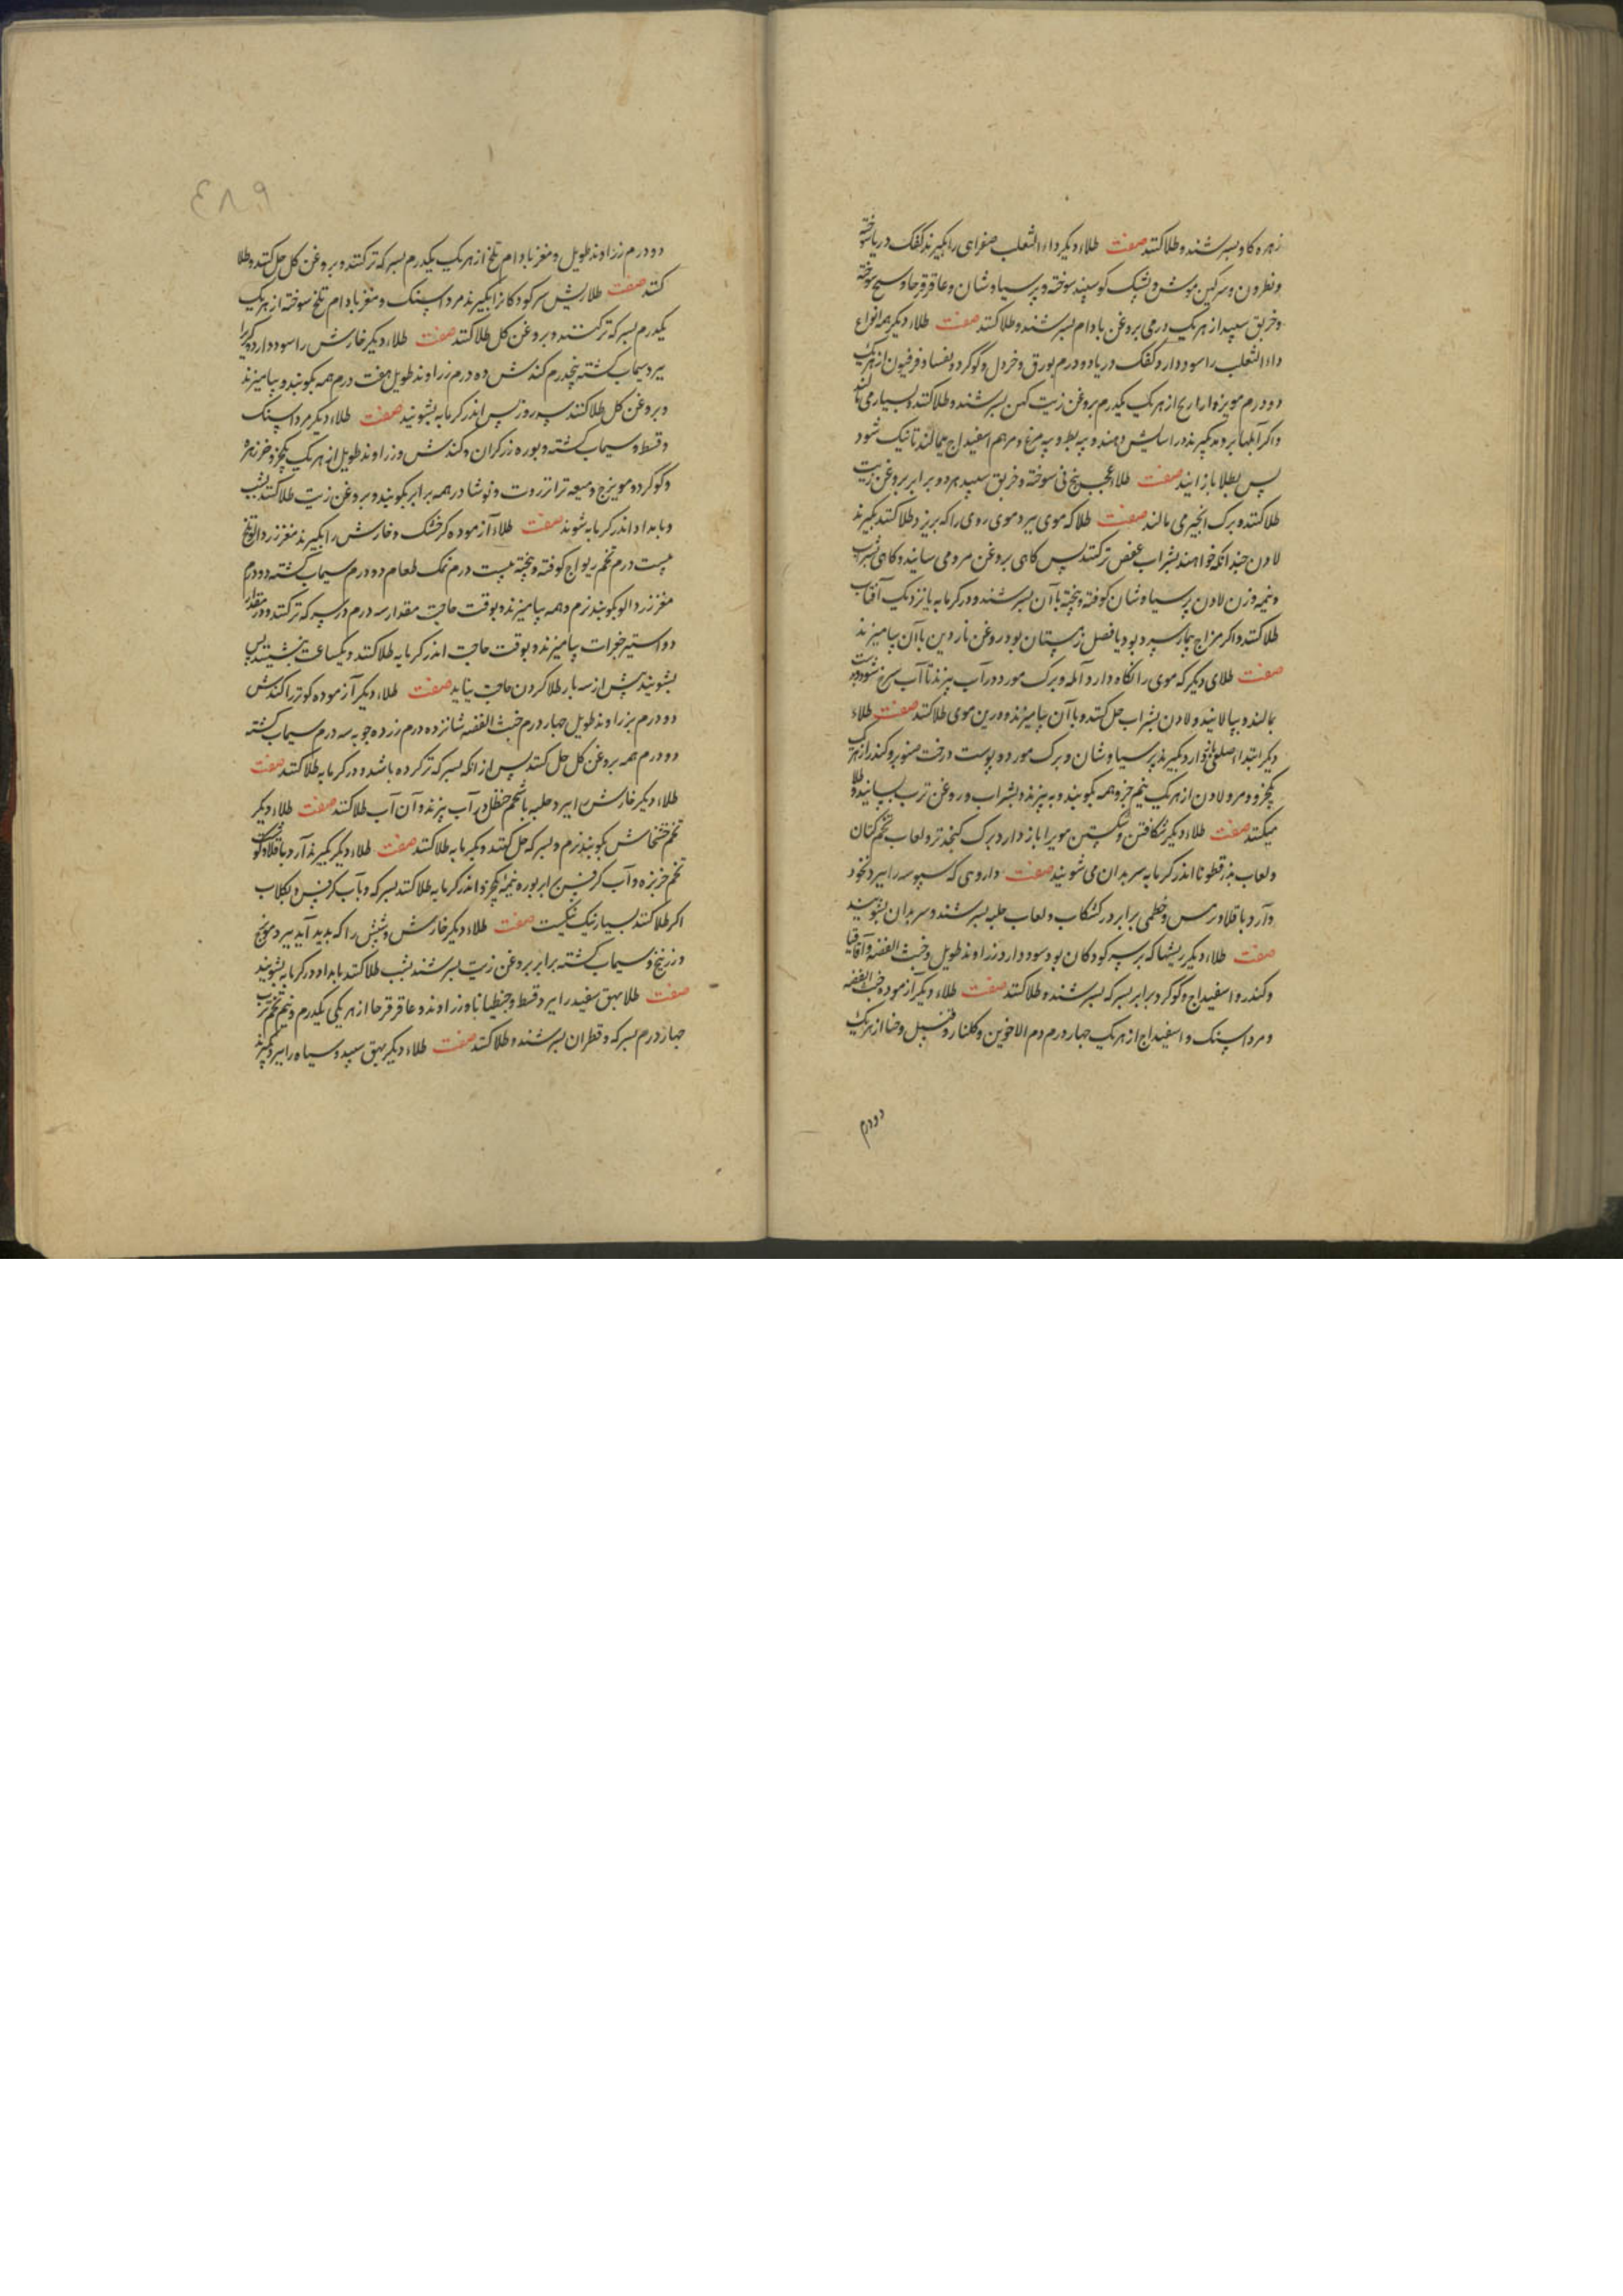 زهره کاو بسرشند و طلا کنند صفت طلاء دیکر داء الثعلب صفراوی را بکیرند کفک دریا سوخته
و نطرون و سرکین موش و پشک کوسپند سوخته و پرسیاوشان و عاقرقرحا و سوخته
و خربق سپید از هر یک درمی بروغن بادام بسرشند و طلا کنند صفت طلاء دیکر همه انواع
داء الثعلب را سود دارد کفک دریا دو درم بورق و خردل و کوکرد و یفسا و فرفیون از هر یک
دو درم مویزه از هر یک یکدرم بروغن زیت کهن بسرشند و طلا کنند و بسیار می مالند
و اکر آبلها بردمد بکیرند و آسایش دهند و پیه بط و پیه مرغ و مرهم اسفیداج می مالند تا نیک شود
پس بطلا باز آیند صفت طلاء عجب بیخ نی سوخته و خربق سپید هر دو برابر بروغن زیت
طلا کنند و برک انجیر می مالند صفت طلا که موی بیرد موی روی را که بریزد طلا کنند بکیرند
لادن چندانکه خواهند بشراب عفص تر کنند پس کاهی بروغن مرو می سایند و کاهی بشراب
و نیمه وزن لادن پرسیاوشان کوفته و بیخته با آن بسرشند و در کرمابه یا نزدیک آفتاب
طلا کنند و اکر مزاج بیمار سرد بود یا فصل زمستان بود روغن ناردین با آن بیامیزند
صفت طلای دیکر که موی را نکاه دارد آمله و برک مورد در آب بپزند تا آب سرخ شود
بمالند و بپالایند و لادن بشراب حل کنند و با آن بیامیزند و در بن موی طلا کنند صفت طلاء
دیکر ابتداء صلعی باز دارد بکیرند پرسیاوشان و برک مورد و پوست درخت صنوبر و کندر از هر یک
یکجزو و مر و لادن از هر یک نیم جزو همه بکوبند و بپزند و بشراب و روغن ترب بسایند و طلا
میکنند صفت طلاء دیکر شکافتن و شکستن موی را باز دارد برک کنجد تر و لعاب تخم کتان
و لعاب بذر قطونا اندر کرمابه سر بدان می شویند صفت داروی که سبوسه را ببرد نخود
و آرد باقلا و ترمس و خطمی برابر در کشکاب و لعاب حلبه بسرشند و سر بدان بشویند
صفت طلاء دیکر ریشها که بر سر کودکان بود سود دارد زراوند طویل و خبث الفضه و آقاقیا
و کندر و اسفیداج و کوکرد برابر بسرکه بسرشند و طلا کنند صفت طلاء دیکر آزموده خبث الفضه
و مرداسنک و اسفیداج از هر یک چهار درم دم الاخوین و کلنار و قنبیل و حنا از هر یک
دو درم
٤٨٩
دو درم زراوند طویل و مغز بادام تلخ از هر یک یکدرم بسرکه تر کنند و بروغن کل حل کنند و طلا
کنند صفت طلا ریش سر کودکان را بکیرند مرداسنک و مغز بادام تلخ سوخته از هر یک
یکدرم بسرکه تر کنند و بروغن کل طلا کنند صفت طلاء دیکر خارش را سود دارد و کر را
ببرد سیماب کشته پنجدرم کندش ده درم زراوند طویل هفت درم همه بکوبند و بیامیزند
و بروغن کل طلا کنند سه روز پس اندر کرمابه بشویند صفت طلاء دیکر مرداسنک
و قسط و سیماب کشته و بوره زرکران و کندش و زراوند طویل از هر یک یکجزو خرزهره
و کوکرد و مویزج و میعه تر انزروت و نوشادر همه برابر بکوبند و بروغن زیت طلا کنند بشب
و بامداد اندر کرمابه شوند صفت طلاء آزموده کر خشک و خارش را بکیرند مغز زردالو تلخ
بیست درم تخم ریواج کوفته و بیخته بیست درم نمک طعام دو درم سیماب کشته دو درم
مغز زردالو بکوبند نرم و همه بیامیزند و بوقت حاجت مقدار سه درم در سرکه تر کنند و در مقدار
دو استیر جغرات بیامیزند و بوقت حاجت اندر کرمابه طلا کنند و یکساعت بنشینند پس
بشویند بیش از سه بار طلا کردن حاجت نیاید صفت طلاء دیکر آزموده کر تر را کندش
دو درم بزراوند طویل چهار درم خبث الفضه شانزده درم زرده چوبه سه درم سیماب کشته
دو درم همه بروغن کل حل کنند پس از انکه بسرکه تر کرده باشد و در کرمابه طلا کنند صفت
طلاء دیکر خارش را ببرد حلبه با شحم حنظل در آب بپزند و آن آب طلا کنند صفت طلاء دیکر
تخم خشخاش بکوبند نرم و بسرکه حل کنند و بکرمابه طلا کنند صفت طلاء دیکر بکیرند آرد باقلا و
تخم خربزه و آب کرفس برابر بوره نیمه یکجزو اندر کرمابه طلا کنند بسرکه و بآب کرفس و بکلاب
اکر طلا کنند بسیار نیک نیکست صفت طلاء دیکر خارش و شپش را که پدید آید ببرد مویزج
و زرنیخ و سیماب کشته برابر بروغن زیت بسرشند بشب طلا کنند بامداد در کرمابه بشویند
صفت طلا بهق سفید را ببرد قسط و جنطیانا و زراوند و عاقرقرحا از هر یکی یکدرم و نیم تخم ترب
چهار درم بسرکه و قطران بسرشند و طلا کنند صفت طلاء دیکر بهق سپید و سیاه را ببرد بکیرند